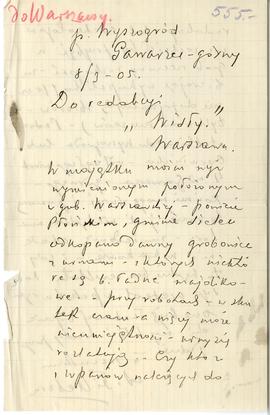 do Warszawy.
555.-
p. Wyszogród
Gawarzec-górny
8/3-05.
Do redakcji
„Wisły."
Warszawa.
W majątku moim wyż
wymienionym położonym
w gub. Warszawskiej - powiecie
Płońskim, gminie Sielec
odkopano dawny grobowiec
z urnami - z których niektó
re są b. ładne
we - przy robotach - w sku
tek czasu a więcej może
nieumiejętności - urny się
rozlatują - Czy kto z
Panów należących do